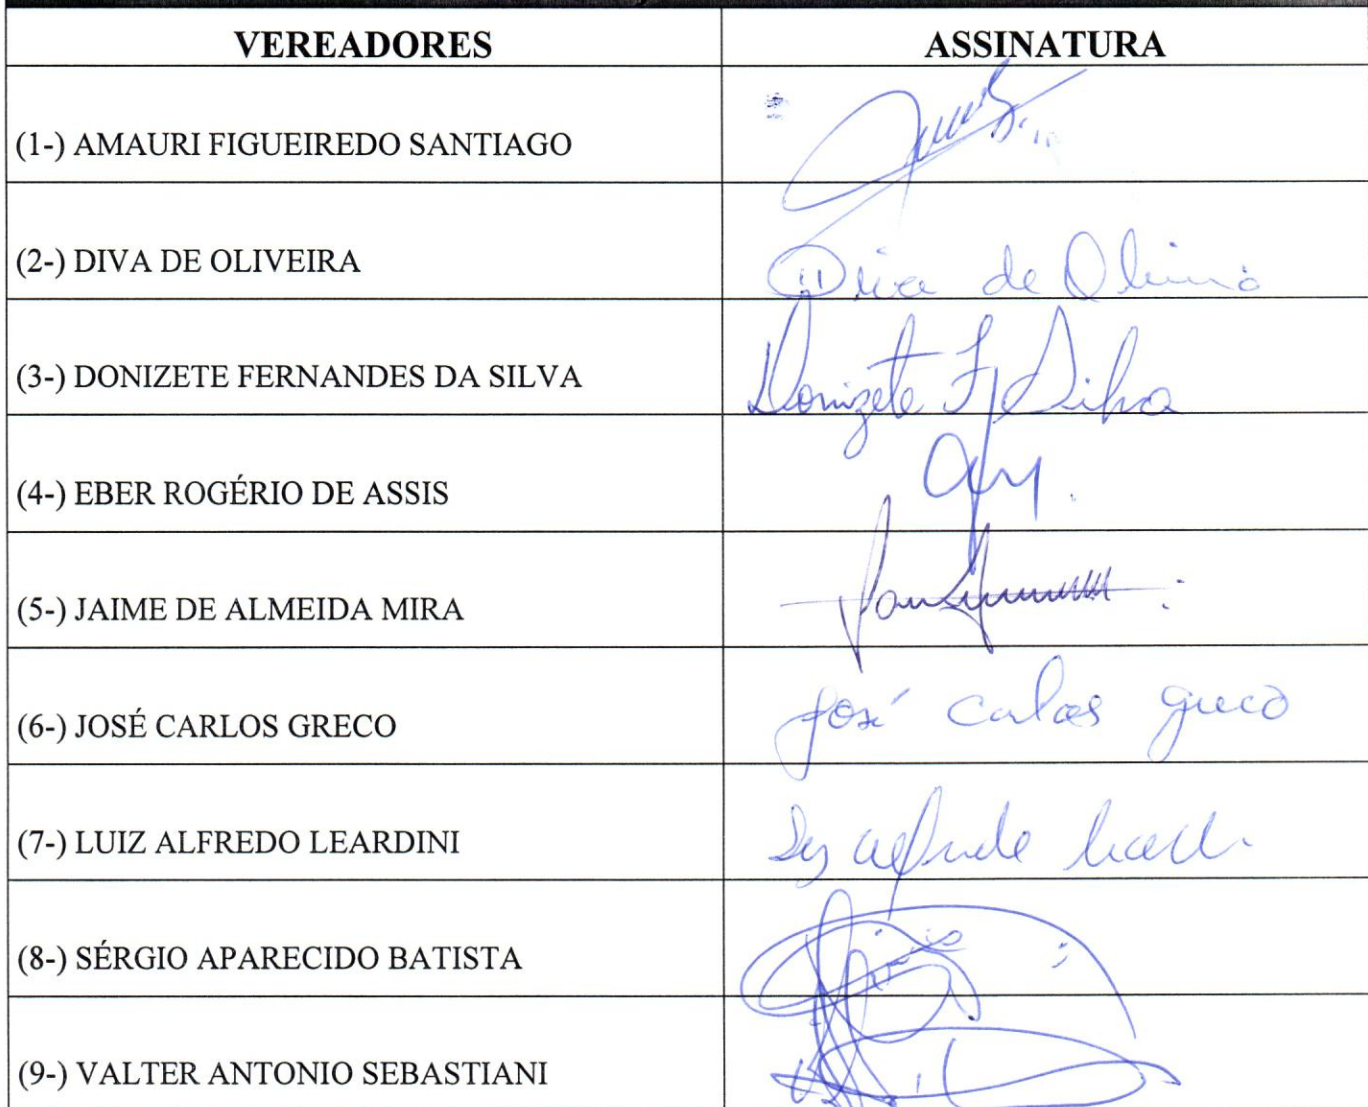 VEREADORES ASSINATURA
(1-) AMAURI FIGUEIREDO SANTIAGO
(2-) DIVA DE OLIVEIRA Diva de Oliveira
(3-) DONIZETE FERNANDES DA SILVA Donizete F. Silva
(4-) EBER ROGÉRIO DE ASSIS
(5-) JAIME DE ALMEIDA MIRA
(6-) JOSÉ CARLOS GRECO José Carlos Greco
(7-) LUIZ ALFREDO LEARDINI
(8-) SÉRGIO APARECIDO BATISTA
(9-) VALTER ANTONIO SEBASTIANI